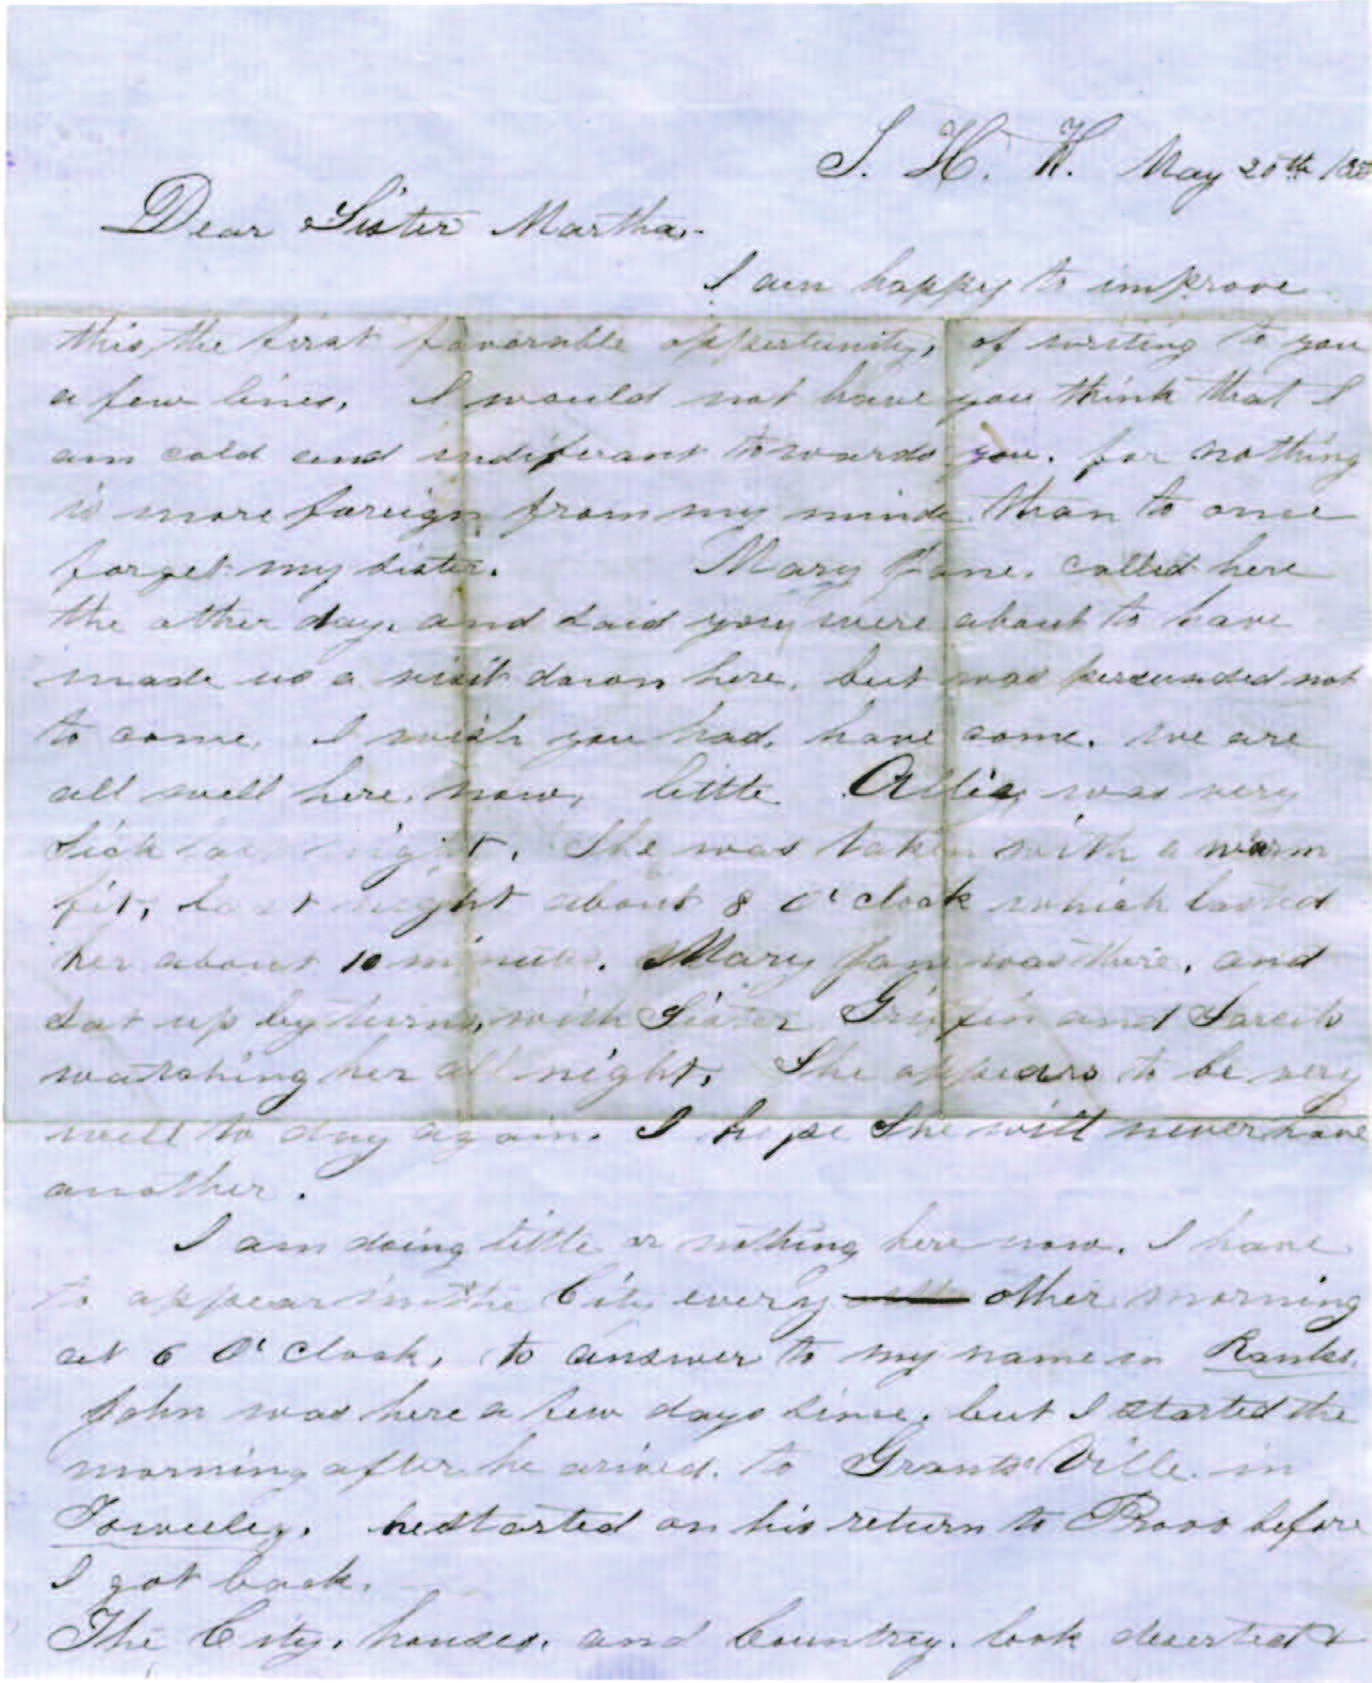 S. H. K. May 20th
Dear Sister Martha,-
I am happy to improve
this, the first favorable oppertunity, of writing to you
a few lines, I would not have you think that I
am cold and indiferant towards you. for nothing
is more foreign from my mind than to once
forget my sister. Mary Jane. called here
the other day, and said you were about to have
made us a visit down here, but was persuaded not
to come, I wish you had, have come. we are
all well here, now, little Allie, was very
sick last night. She was taken with a warm
fit, last night about 8 O'clock which lasted
her about 10 minutes. Mary Jane was there, and
sat up by turns, with Sister Griffin and Sarah
watching her all night, She appears to be very
well to day again. I hope She will never have
another.
I am doing little or nothing here now. I have
to appear in the City every other morning
at 6 O'Clock, to answer to my name in Ranks.
John was here a few days since, but I started the
morning after he arived. to Grants Ville in
Toweeley. he started on his return to Provo before
I got back.
The City, houses, and Country, look deserted &